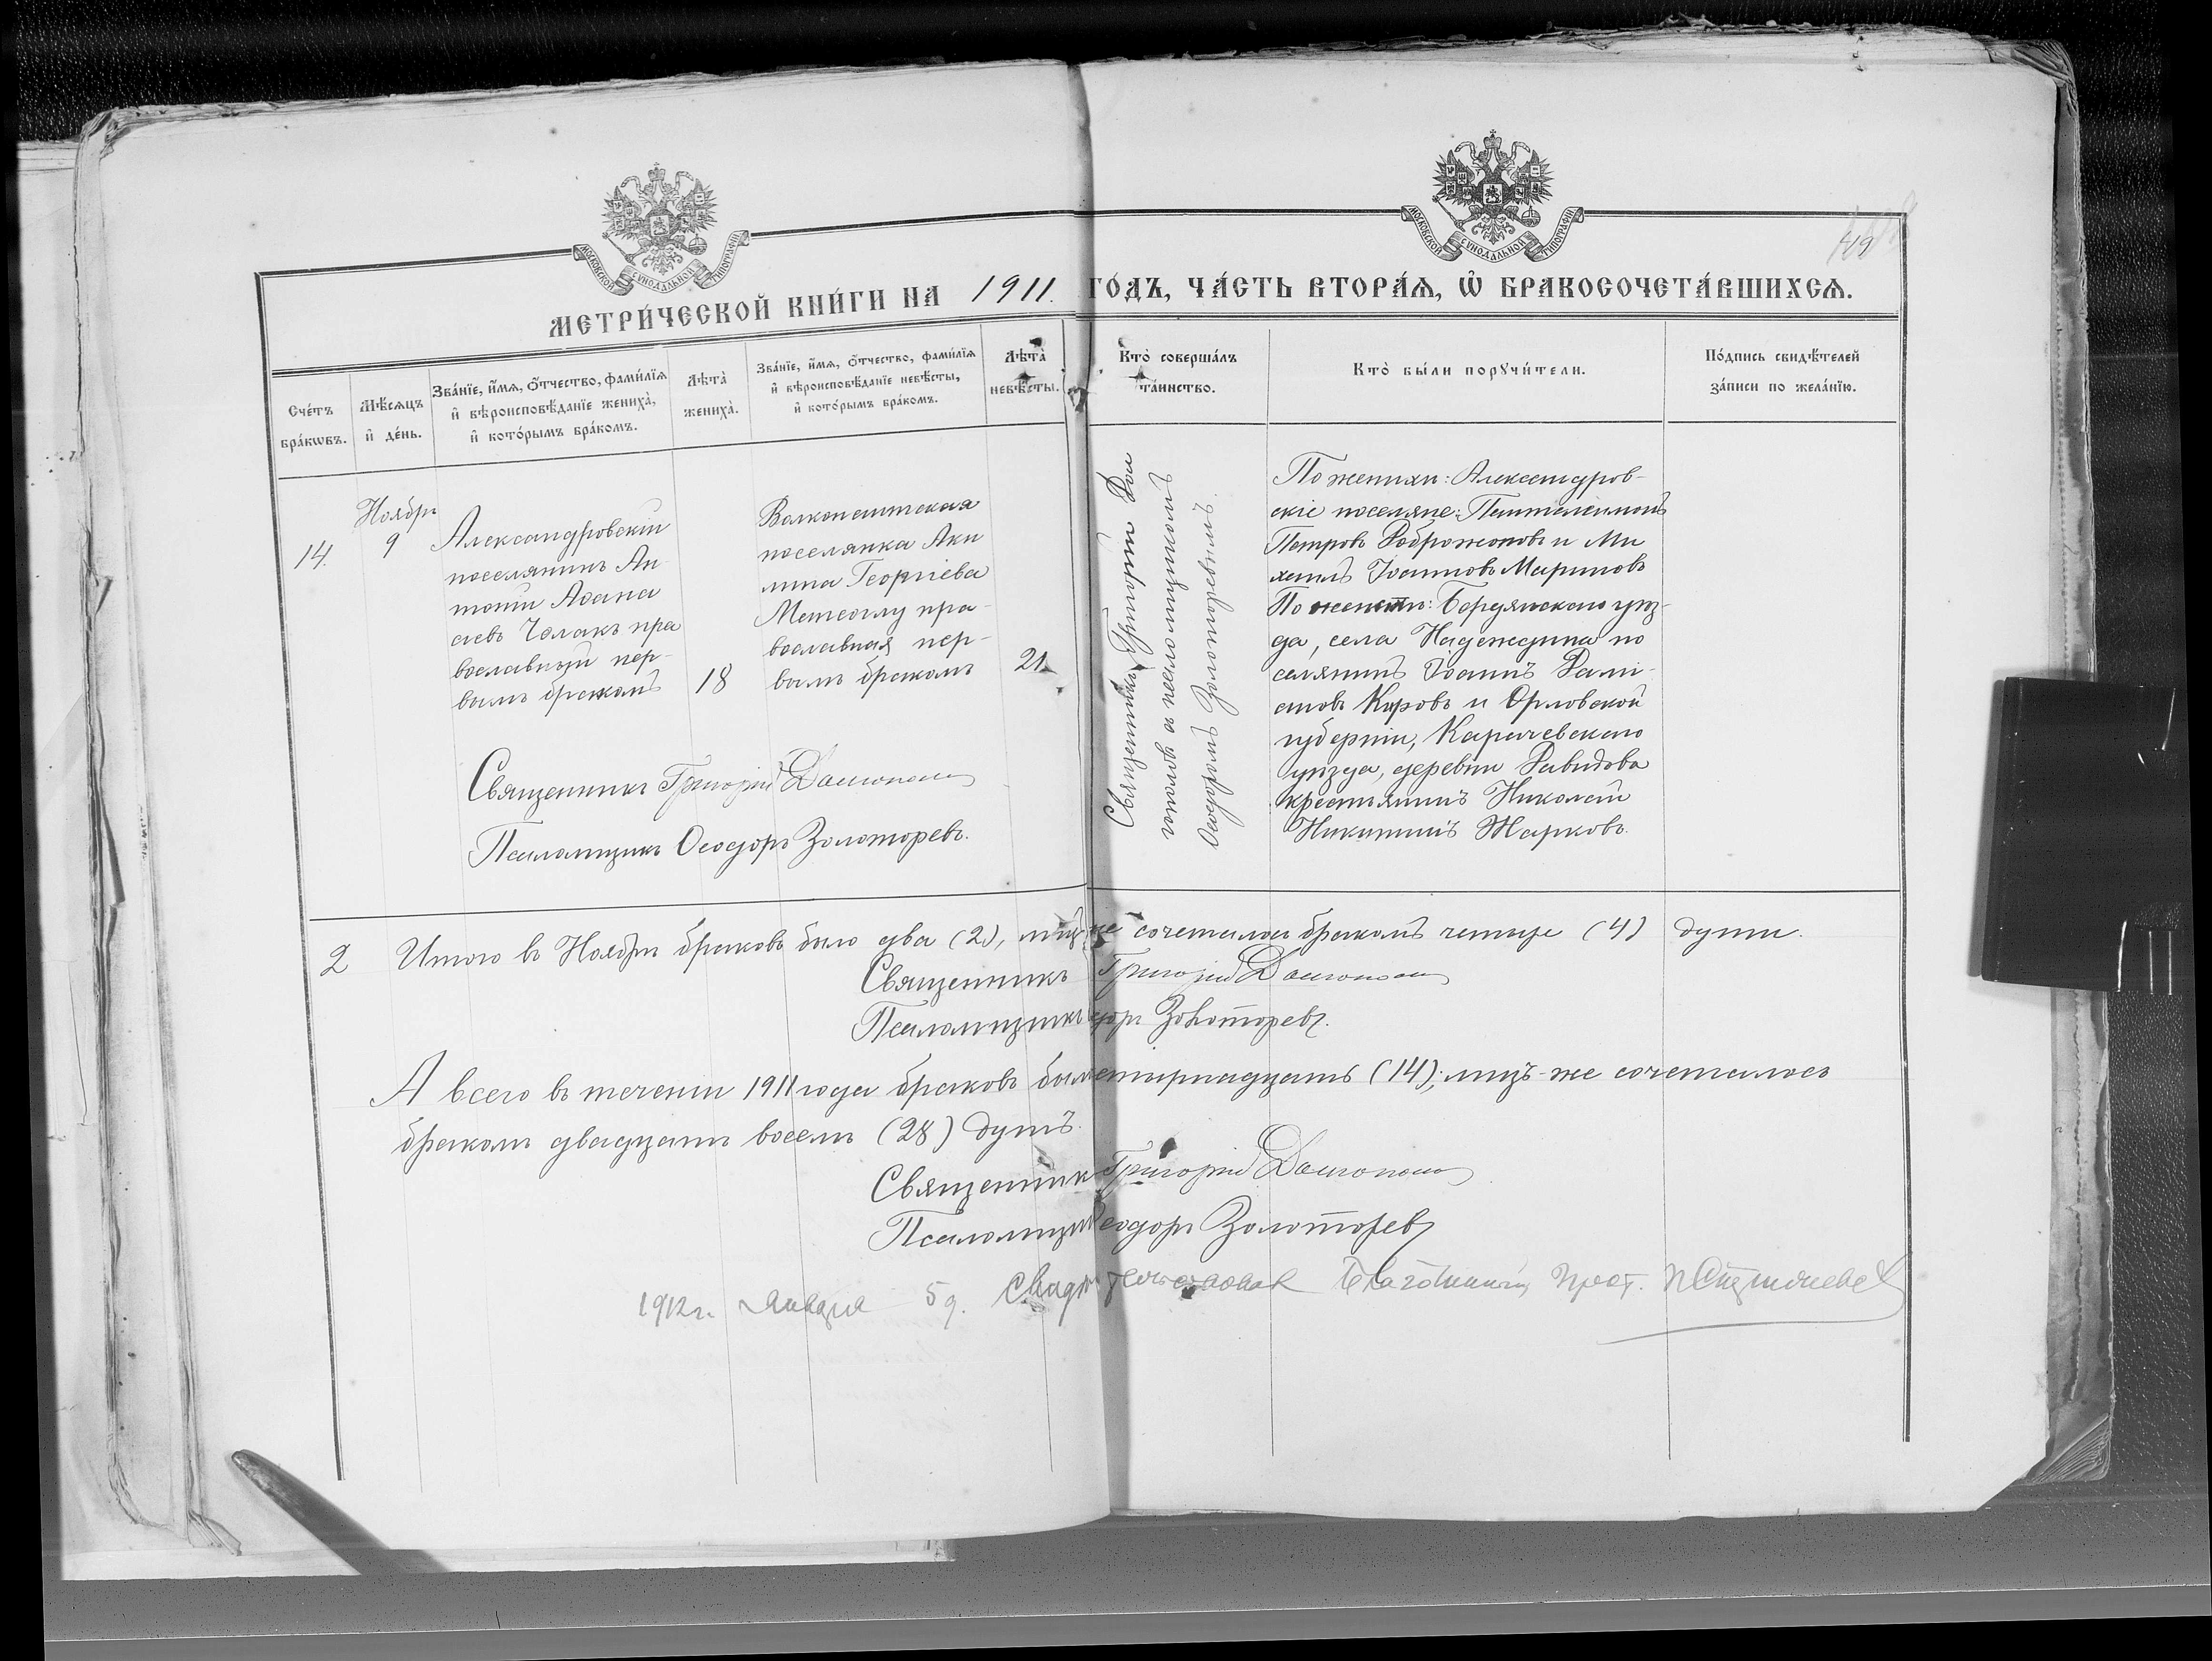 МОСКОВСКОЙ СѴНОДАЛЬНОЙ ТИПОГРАФІИ
МОСКОВСКОЙ СѴНОДАЛЬНОЙ ТИПОГРАФІИ
49
МЕТРИ́ЧЕСКОЙ КНИ́ГИ НА 1911. ГО́ДЪ, ЧА́СТЬ ВТОРА́Ѧ, Ѡ҆ БРАКОСОЧЕТА́ВШИХСѦ.
Сче́тъ бра́кωвъ.
Мѣ́сяцъ и҆ де́нь.
Зва́нїе, и҆́мѧ, ѻ҆́тчество, фами́лїѧ
и҆ вѣроисповѣ́данїе жениха̀,
и҆ кото́рымъ бра́комъ.
Лѣта̀ жениха̀.
Зва́нїе, и҆́мѧ, ѻ҆́тчество, фами́лїѧ
и҆ вѣроисповѣ́данїе невѣ́сты,
и҆ кото́рымъ бра́комъ.
Лѣта̀ невѣ́сты.
Кто̀ соверша́лъ
та́инство.
Кто̀ бы́ли порꙋчи́тели.
По́дпись свидѣ́телей
за́писи по жела́нїю.
14.
Ноябрь
9
Александровскій
поселянинъ Ан-
тоній Аѳана
сіевъ Чолакъ пра
вославный пер-
вымъ бракомъ
18
поселянка Аки
лина Георгіева
пра-
вославная пер-
вымъ бракомъ
21
Священникъ Григорій Дол
гополъ с псаломщикомъ
Ѳеодоромъ Золоторевымъ.
По женихѣ: Александров-
скіе поселяне: Пантелеимонъ
Петровъ Доброжоновъ и Ми
хаилъ Іоанновъ Мариновъ
По невѣстѣ: Бердянскаго уѣз-
да, села Надеждина по
селянинъ Іоаннъ Дамі-
ановъ Кировъ и Орловской
губерніи, Карачевскаго
уѣзда, деревни Давидова
крестьянинъ Николай
Никитинъ Жарковъ.
Священникъ Григорій Долгополъ
Псаломщикъ Ѳеодоръ Золоторевъ.
2 Итого въ Ноябрѣ браковъ было два (2), лицъ же сочеталось бракомъ четыре (4) души.
Священникъ Григорій Долгополъ
Псаломщикъ Золоторевъ.
А всего въ теченіи 1911 года браковъ было четырнадцать (14); лицъ-же сочеталось
бракомъ двадцать восемь (28) душъ.
Священникъ Григорій Долгополъ
Псаломщикъ Ѳеодоръ Золоторевъ
1912 г. Января 5 д. Благочинный Прот.